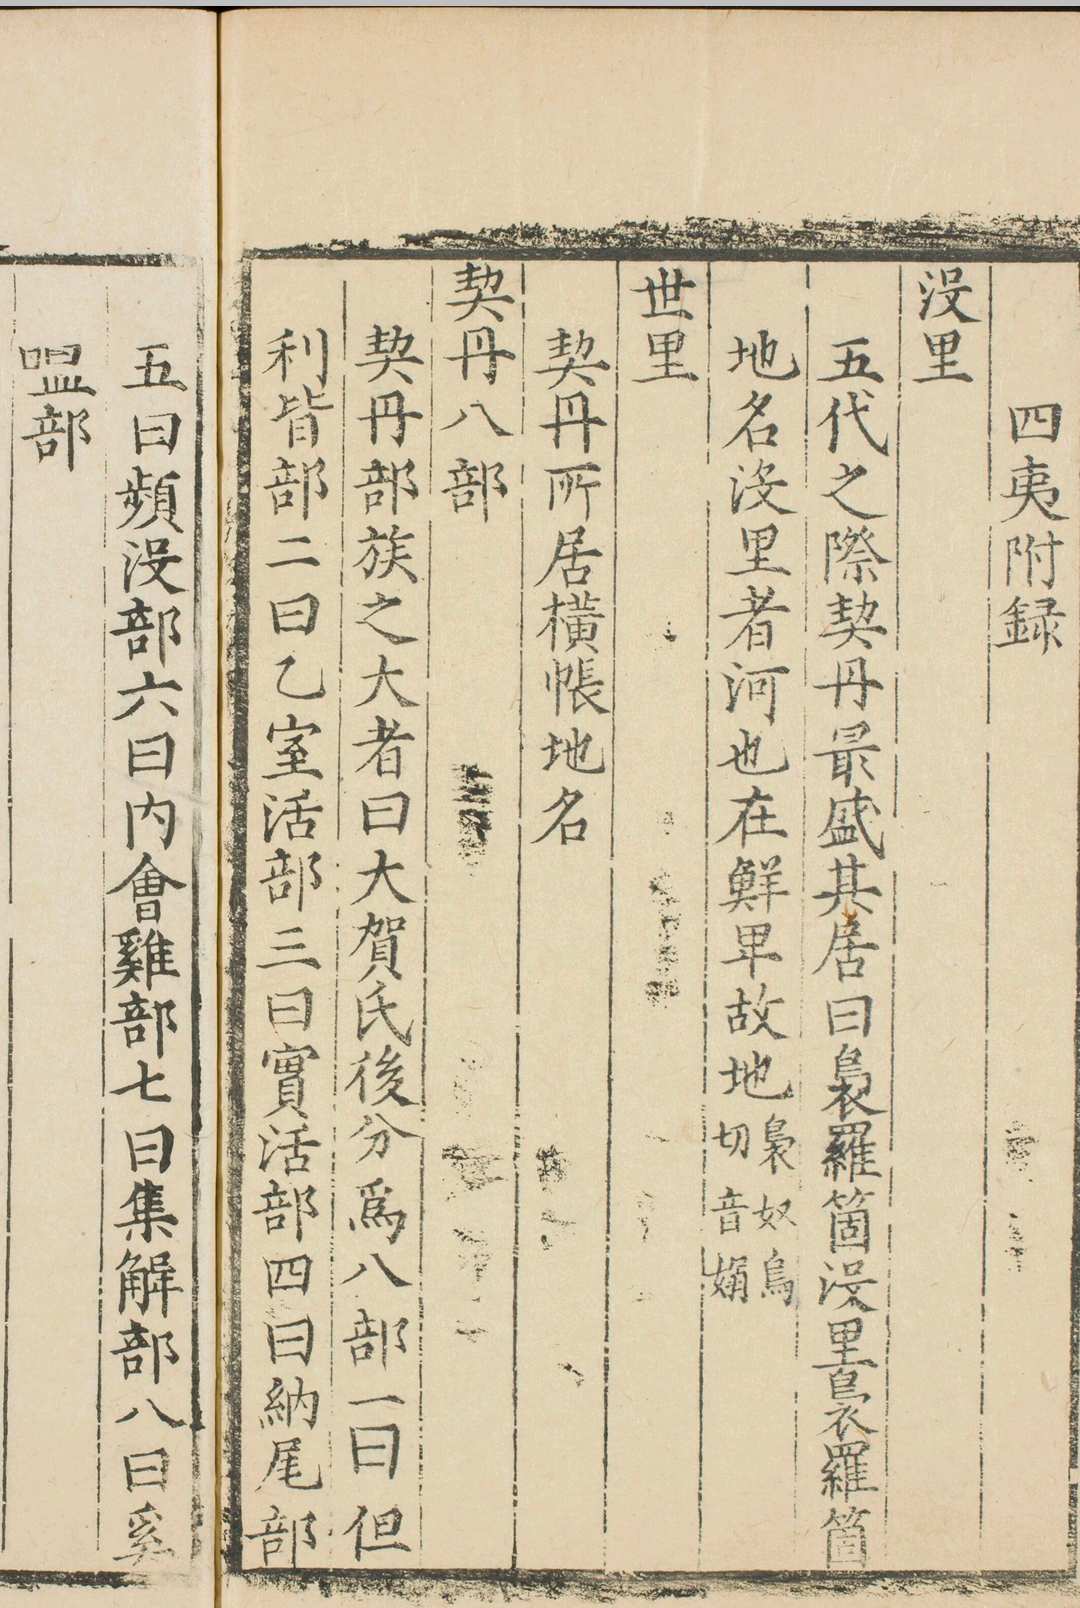 四夷附録
没里
五代之際契丹最盛其居曰裊羅箇没里裊羅箇
地名没里者河也在鮮卑故地裊奴鳥切音嫋
世里
契丹所居橫帳地名
契丹八部
契丹部族之大者曰大賀氏後分爲八部一曰但
利皆部二曰乙室活部三曰實活部四曰納尾部
五曰頻没部六曰内會雞部七曰集解部八曰奚
嗢部